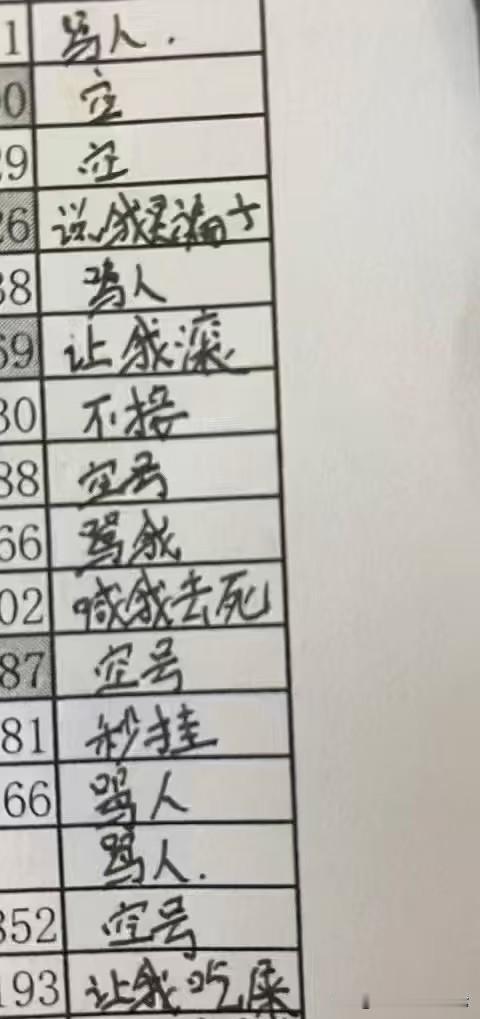 1 骂人.
0 空
29 空
26 说我是骗子
38 骂人
69 让我滚
30 不接
88 空号
66 骂我
02 喊我去死
87 空号
81 秒挂
66 骂人
骂人.
352 空号
193 让我吃屎